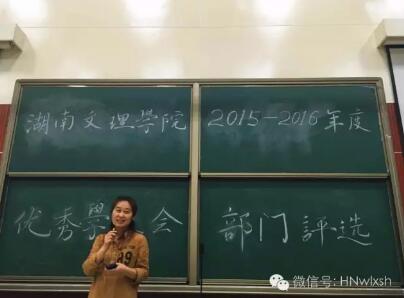 湖南文理學院 2015-2016年度
优秀學 会 部门評选
微信号: HNwlxsh